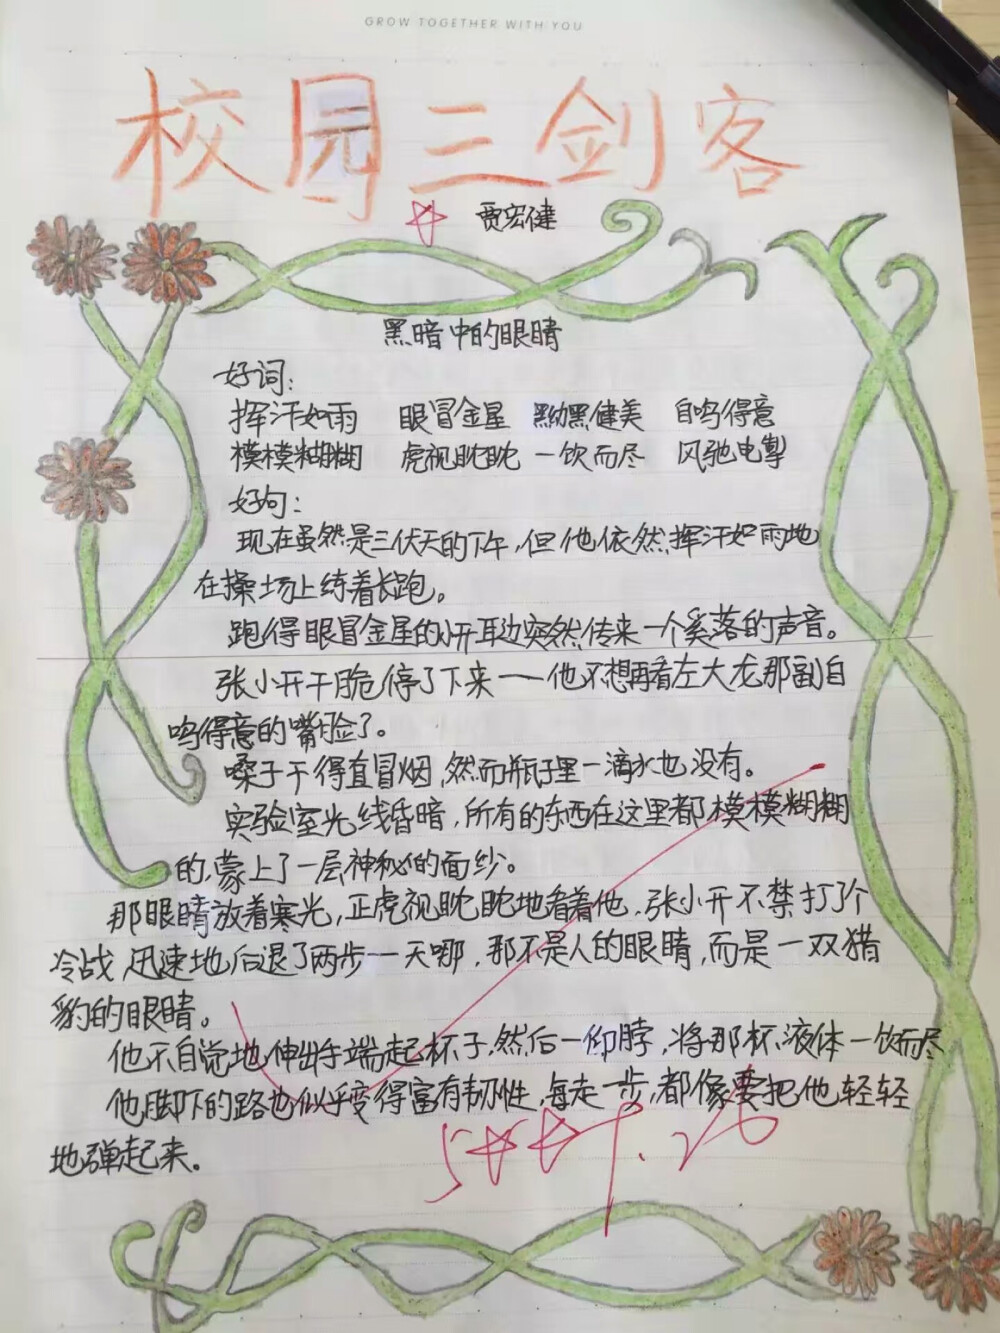 GROW TOGETHER WITH YOU
校园三剑客
贾宏健
黑暗中的眼睛
好词：
挥汗如雨 眼冒金星 黝黑健美 自鸣得意
模模糊糊 虎视眈眈 一饮而尽 风驰电掣
好句：
现在虽然是三伏天的下午，但他依然挥汗如雨地
在操场上练着长跑。
跑得眼冒金星的小开耳边突然传来一个奚落的声音。
张小开干脆停了下来——他不想再看左大龙那副自
鸣得意的嘴脸了。
嗓子干得直冒烟，然而瓶子里一滴水也没有。
实验室光线昏暗，所有的东西在这里都模模糊糊
的，蒙上了一层神秘的面纱。
那眼睛放着寒光，正虎视眈眈地看着他，张小开不禁打了个
冷战，迅速地后退了两步——天哪，那不是人的眼睛，而是一双猎
豹的眼睛。
他不自觉地伸出手端起杯子，然后一仰脖，将那杯液体一饮而尽
他脚下的路也似乎变得富有韧性，每走一步，都像要把他轻轻
地弹起来。
5☆☆ 9.26